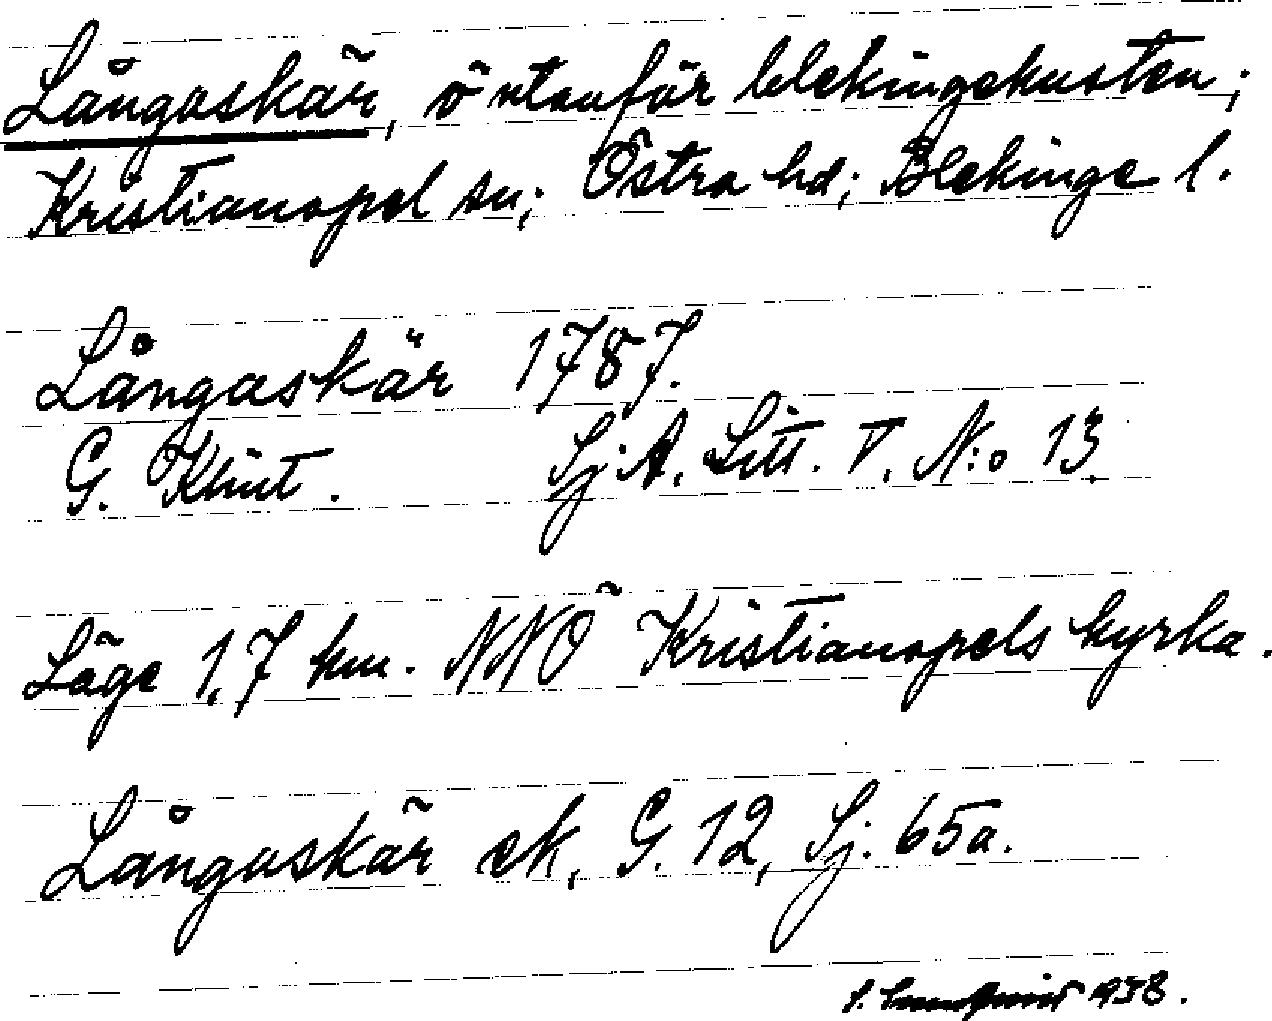 Långaskär, ö utanför blekingekusten;
Kristianopel sn; Östra hd; Blekinge l.
Långaskär 1787.
G. Klint. Sj.A. Litt. V. N:o 13.
Läge 1,7 km. NNÖ Kristianopels kyrka.
Långaskär ek, G. 12, Sj. 65a.
1938.